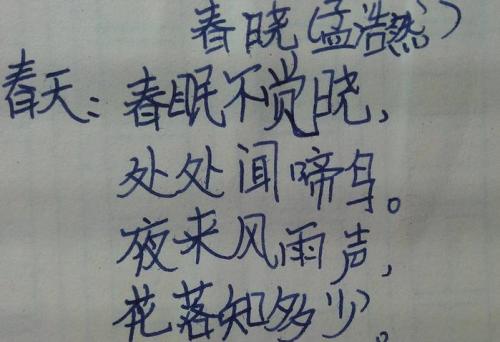 春晓(孟浩然)
春天：春眠不觉晓，
处处闻啼鸟。
夜来风雨声，
花落知多少。